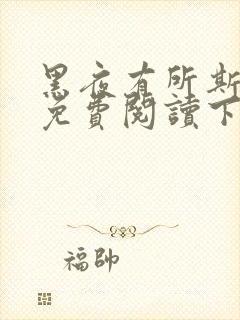 黑夜有所斯
免費閱讀下
福帥